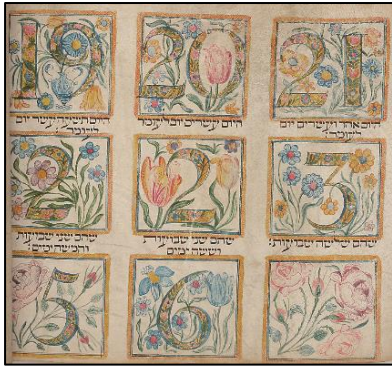 19
20
21
היום תשעה עשר יום
לעומר:
היום עשרים יום לעומר
היום אחד ועשרים יום
לעומר:
2
2
3
שהם שני שבועות
וחמשה ימים:
שהם שני שבועות
וששה ימים
שהם שלשה שבועות:
5
6